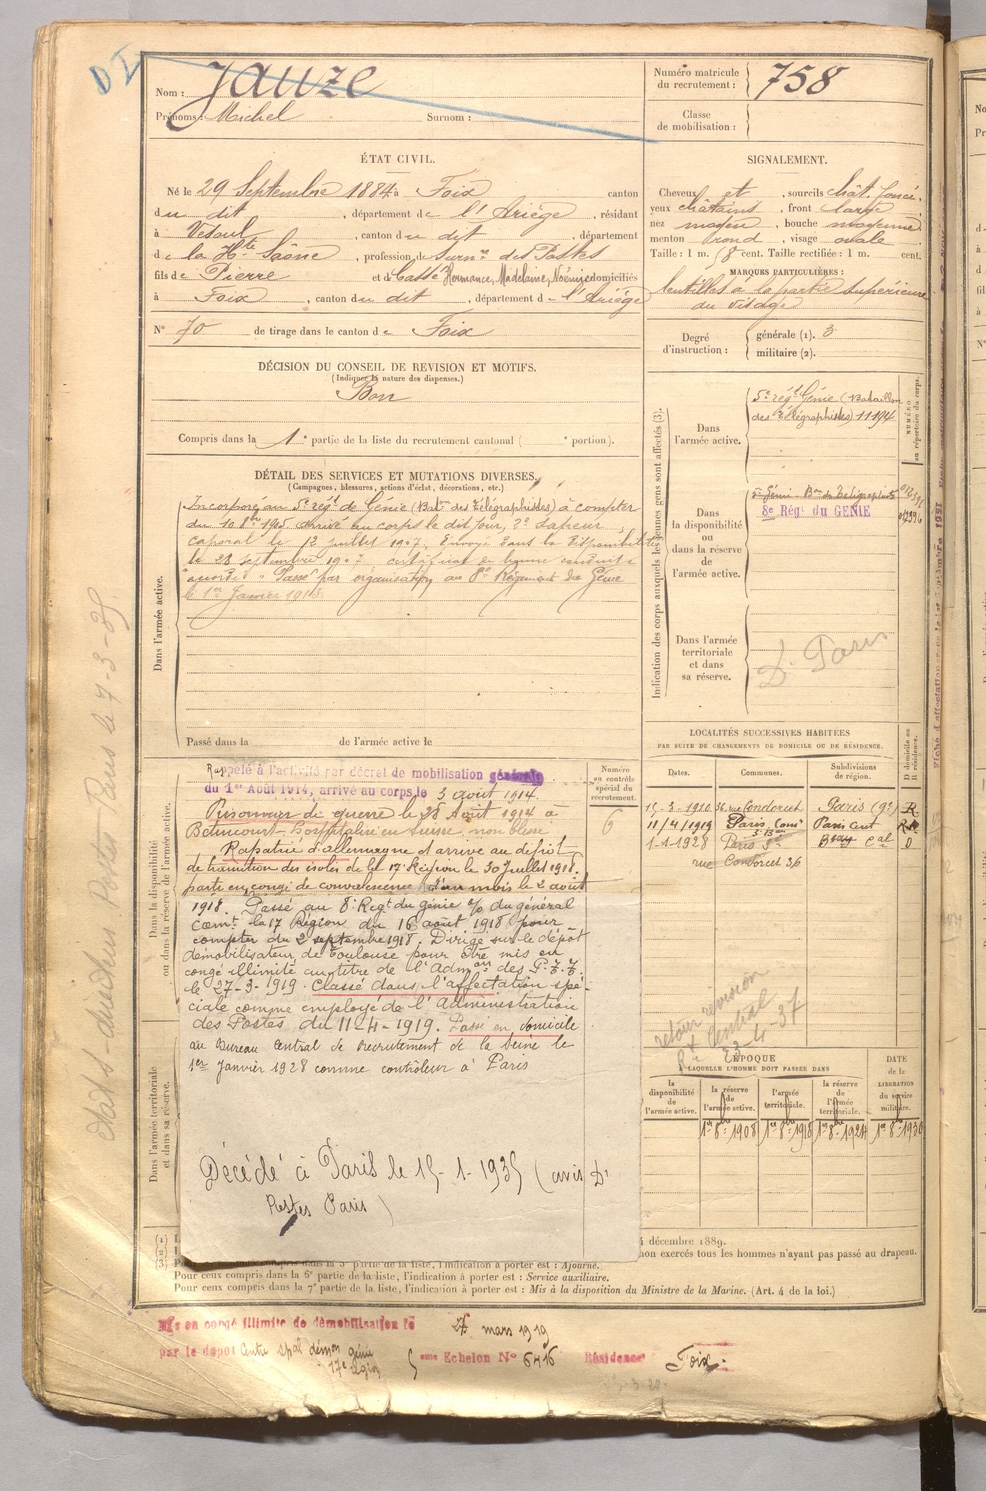 DI
Nom : Jauze
Prénoms : Michel Surnom :
Numéro matricule du recrutement : 758
Classe de mobilisation :
ÉTAT CIVIL.
Né le 29 Septembre 1884 à Foix canton
du dit, département de l'Ariège, résidant
à Vesoul, canton du dit, département
de la Hte Saône, profession de Surn.re des Postes
fils de Pierre et de Hermance, Madelaine, Noémie domiciliés
à Foix, canton du dit, département de l'Ariège
N° 70 de tirage dans le canton de Foix
SIGNALEMENT.
Cheveux et, sourcils chât. foncé,
yeux châtains, front large
nez moyen, bouche moyenne
menton rond, visage ovale
Taille : 1 m. 58 cent. Taille rectifiée : 1 m. cent.
MARQUES PARTICULIÈRES :
lentilles à la partie supérieure
du visage
Degré d'instruction : générale (1). 3
militaire (2).
DÉCISION DU CONSEIL DE REVISION ET MOTIFS.
(Indiquer la nature des dispenses.)
Bon
Compris dans la 1e partie de la liste du recrutement cantonal ( e portion).
DÉTAIL DES SERVICES ET MUTATIONS DIVERSES.
(Campagnes, blessures, actions d'éclat, décorations, etc.)
Dans l'armée active.
Incorporé au 5e régt de Génie (Baton des Télégraphistes) à compter
du 10 8bre 1905 arrivé au corps le dit jour, 2e Sapeur
caporal le 12 juillet 1907. Envoyé dans la Disponibilité
le 28 septembre 1907 certificat de bonne conduite
"accordé" Passé par organisation au 8e Régiment de Génie
le 1er Janvier 1914
Passé dans la de l'armée active le
Indication des corps auxquels les jeunes gens sont affectés (3).
NUMÉRO au répertoire du corps.
Dans l'armée active.
5e régt Génie (Bataillon
des Télégraphistes) 11194
Dans la disponibilité ou dans la réserve de l'armée active.
5e Génie Bon de Télégraphistes
8e Régt du GENIE
Dans l'armée territoriale et dans sa réserve.
Dr Paris
LOCALITÉS SUCCESSIVES HABITÉES
PAR SUITE DE CHANGEMENTS DE DOMICILE OU DE RÉSIDENCE.
Dates. Communes. Subdivisions de région. D domicile ou R résidence.
15-3-1910 36, rue Condorcet Paris (9e) R
11/4/1919 Paris Paris Cent R
1-1-1928 Paris 9e Cal D
rue Condorcet 36
Dans la disponibilité ou dans la réserve de l'armée active.
Numéro au contrôle spécial du recrutement.
6
Rappelé à l'activité par décret de mobilisation générale
du 1er Août 1914, arrivé au corps le 3 août 1914.
Prisonnier de guerre le 28 Août 1914 à
Bétincourt - hospitalisé en Suisse, non blessé
Rapatrié d'allemagne et arrivé au dépôt
de transition des isolés de la 17e Région le 30 juillet 1918.
parti en congé de convalescence d'un mois le 2 août
1918. Passé au 8e Regt du génie o/ du général
Commt la 17 Région du 16 août 1918 pour
compter du 2 septembre 1918. Dirigé sur le dépôt
démobilisateur de Toulouse pour être mis en
congé illimité au titre de l'Admon des P.T.T.
le 27-3-1919. Classé dans l'affectation spé-
ciale comme employé de l'Administration
des Postes, du 11-4-1919. Passé en domicile
au Bureau Central de recrutement de la Seine le
1er Janvier 1928 comme contrôleur à Paris
Décédé à Paris le 15-1-1935 (avis Dr
Postes Paris)
Dans l'armée territoriale et dans sa réserve.
retour revision
Rt Central
23-4-37
ÉPOQUE
À LAQUELLE L'HOMME DOIT PASSER DANS
DATE de la LIBÉRATION du service militaire.
la disponibilité de l'armée active. la réserve de l'armée active. l'armée territoriale. la réserve de l'armée territoriale.
1er 8bre 1908 1er 8bre 1918 1er 8bre 1924 1er 8bre 1930
décembre 1889.
non exercés tous les hommes n'ayant pas passé au drapeau.
(3) partie de la liste, l'indication à porter est : Ajourné.
Pour ceux compris dans la 6e partie de la liste, l'indication à porter est : Service auxiliaire.
Pour ceux compris dans la 7e partie de la liste, l'indication à porter est : Mis à la disposition du Ministre de la Marine. (Art. 4 de la loi.)
Mis en congé illimité de démobilisation le 27 mars 1919
par le dépôt Centre spal démon génie
17e région
5eme Echelon N° 6416 Résidence Foix.
Postes Paris le 7-3-35